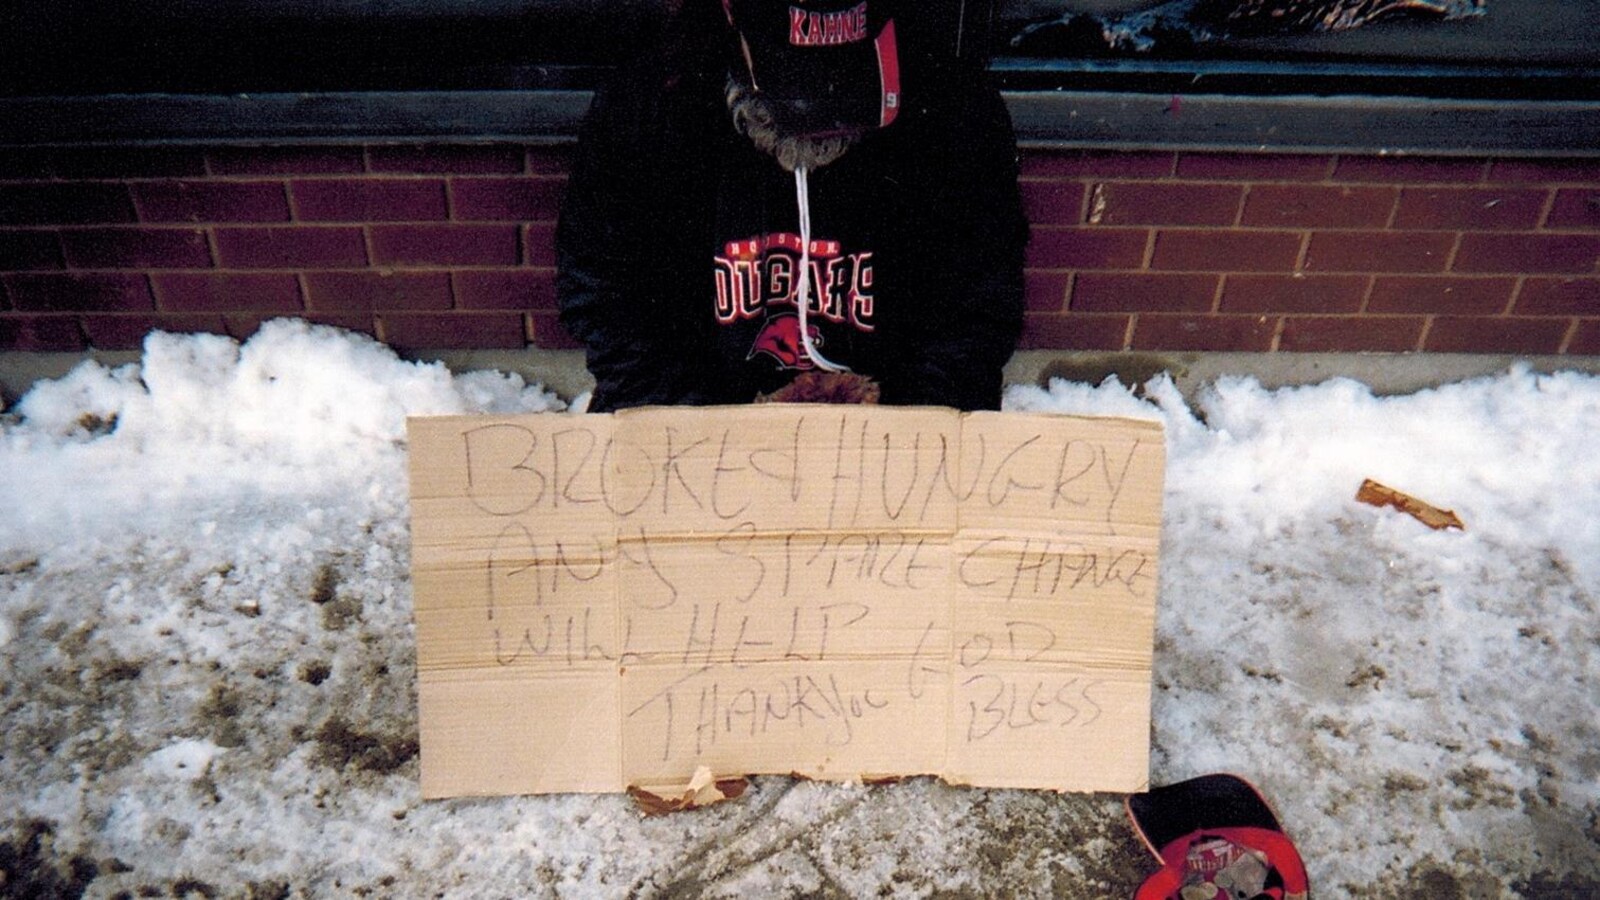 KAHNE
9
HOUSTON
OUGARS
BROKE & HUNGRY
ANY SPARE CHANGE
WILL HELP GOD
THANK You BLESS